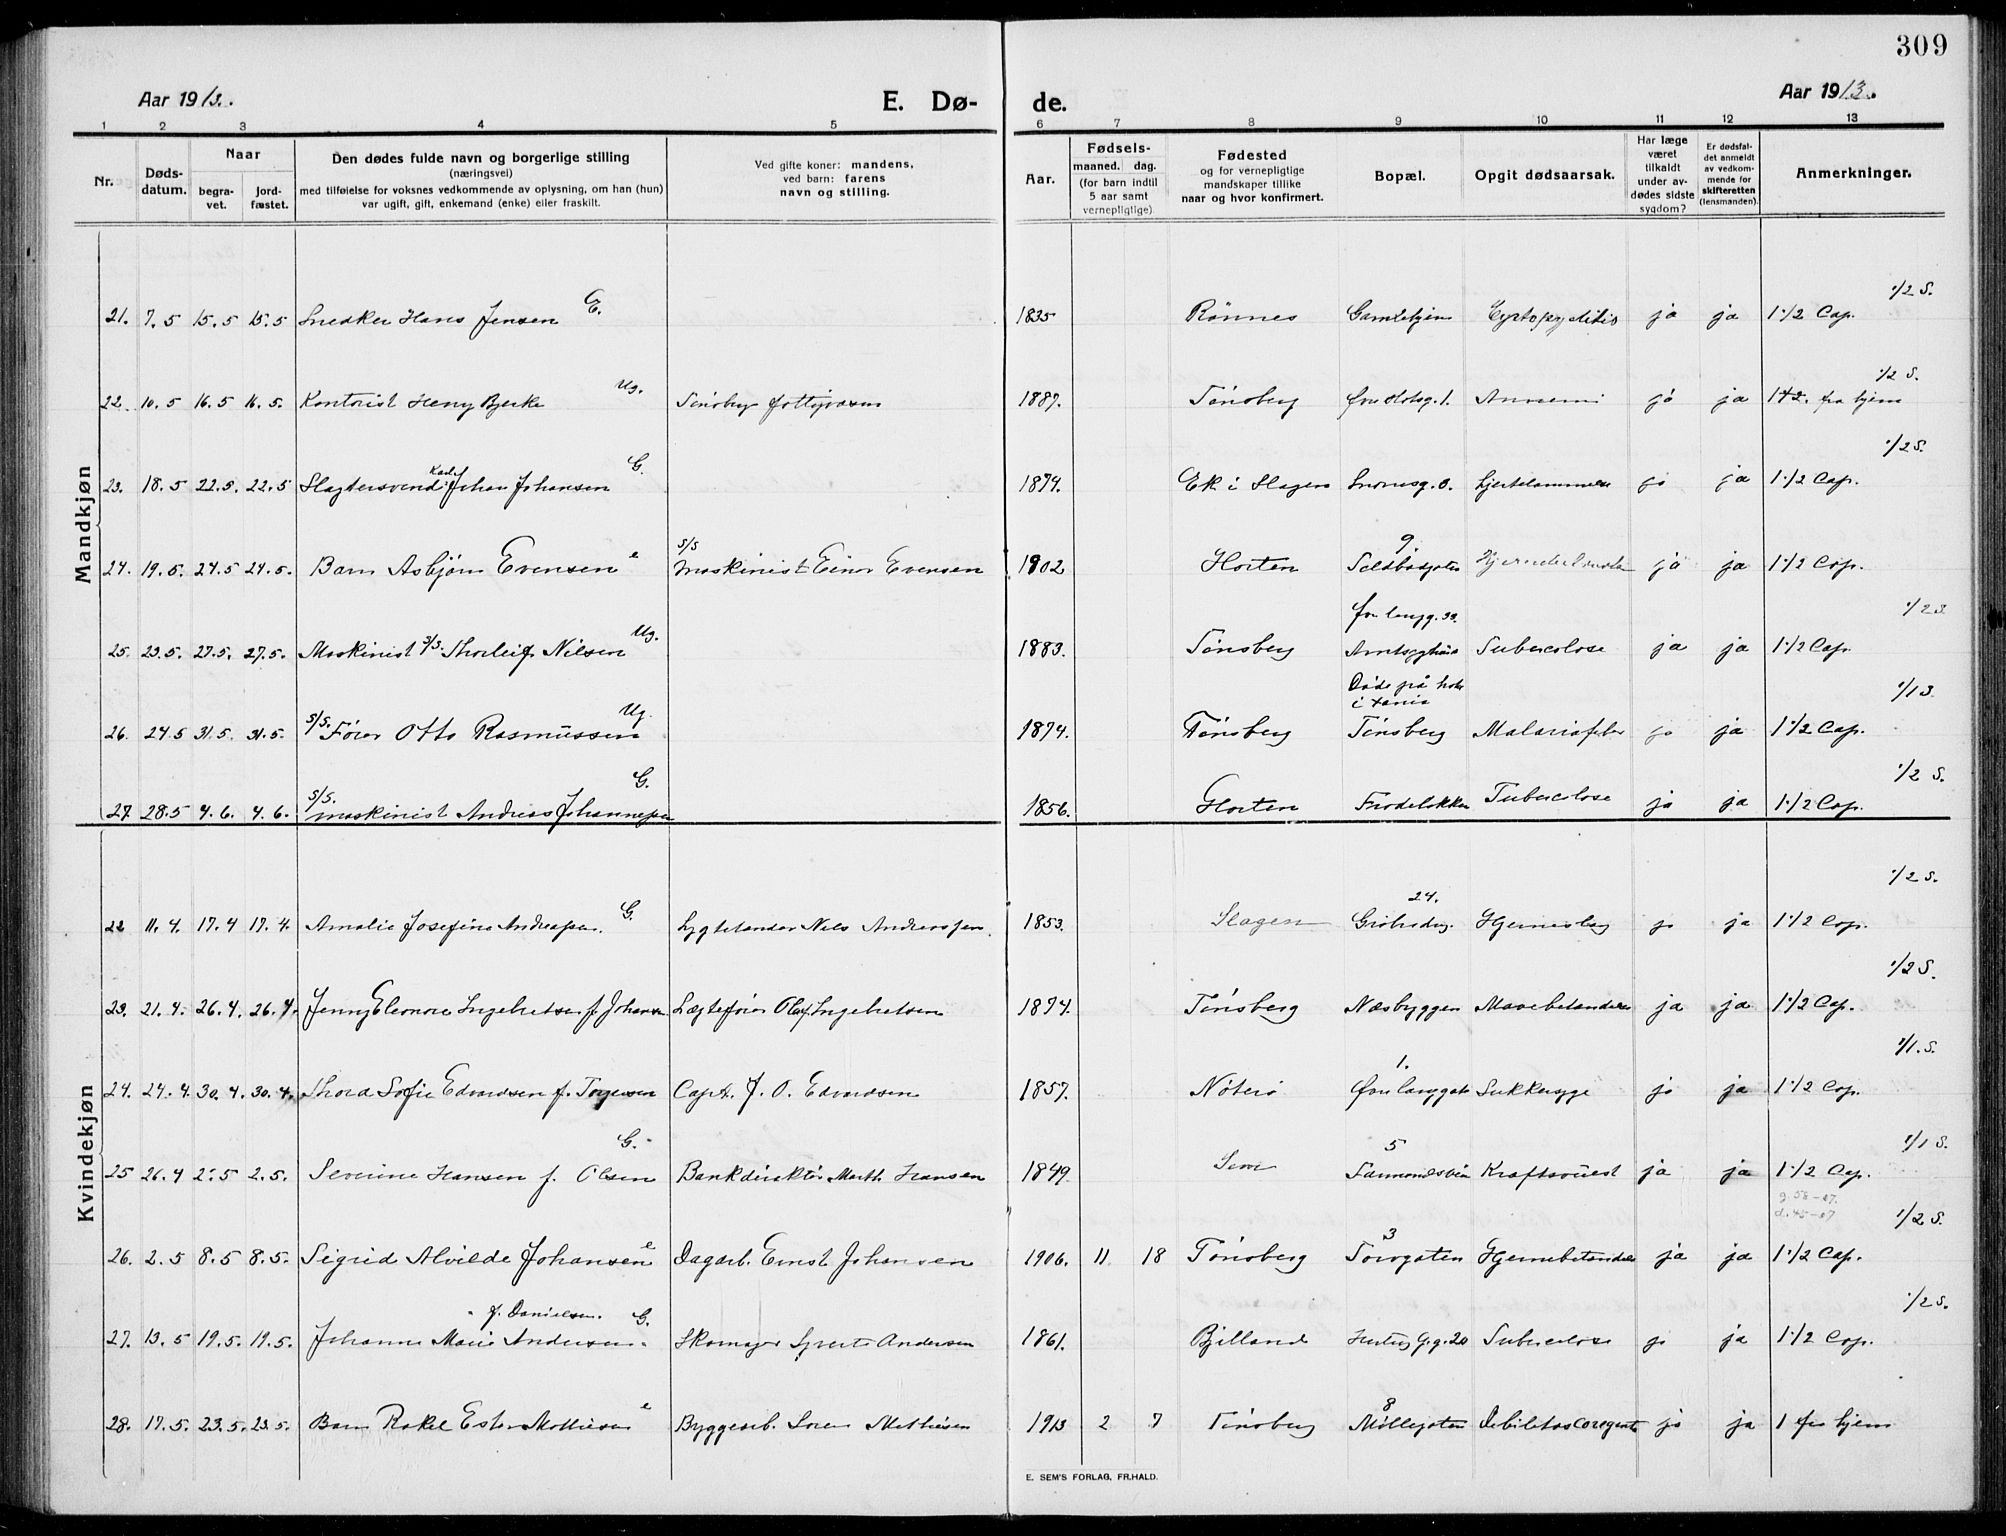 309
Aar 1913.
E. Dø-
de.
Aar 1913.
1 2 3 4 5 6 7 8 9 10 11 12 13
Nr.
Døds-
datum.
Naar
begra-
vet.
jord-
fæstet.
Den dødes fulde navn og borgerlige stilling
(næringsvei)
med tilføielse for voksnes vedkommende av oplysning, om han (hun)
var ugift, gift, enkemand (enke) eller fraskilt.
Ved gifte koner: mandens,
ved barn: farens
navn og stilling.
Aar.
Fødsels-
maaned. dag.
(for barn indtil
5 aar samt
vernepligtige)
Fødested
og for vernepligtige
mandskaper tillike
naar og hvor konfirmert.
Bopæl.
Opgit dødsaarsak.
Har læge
været
tilkaldt
under av-
dødes sidste
sygdom?
Er dødsfal-
det anmeldt
av vedkom-
mende for
skifteretten
(lensmanden).
Anmerkninger.
Mandkjøn
21. 7.5 15.5 15.5 Snedker Hans Jensen E. 1835 Rønnes Gamlehjem ja ja 1 1/2 Cap. 1/2 S.
22. 10.5 16.5 16.5. Kontorist Heny Bjerke Ug. 1887. Tønsberg ja ja fra hjem 1/2 S.
23. 18.5 22.5. 22.5 Slagtersvend Karl Johan Johansen G. 1874. Ek i Slagen ja ja 1 1/2 Cap. 1/2 S.
24. 19.5. 24.5 24.5. Barn Asbjørn Evensen e S/S Maskinist Einar Evensen 1902 Horten 9. ja ja 1 1/2 Cap.
25. 23.5. 27.5. 27.5. Maskinist S/S. Thorleif Nilsen Ug. 1883. Tønsberg Tubercolose ja ja 1 1/2 Cap. 1/2 S
26. 24.5 31.5. 31.5. S/S. Fører Otto Rasmussen Ug. 1874. Tønsberg Døde på Tønsberg Malariafeber ja ja 1 1/2 Cap. 1/1 S.
27. 28.5 4.6. 4.6. S/S. maskinist Andreas Johannessen G. 1856. Horten Tubercolose ja ja 1 1/2 Cap. 1/2 S.
Kvindekjøn
22 11.4. 17.4 17.4. Amalie Josefine Andreassen. G. Lygtetænder Nils Andreassen. 1853. Slagen 24. Hjerneslag ja ja 1 1/2 Cap. 1/2 S.
23. 21.4. 26.4. 26.4. Jenny Eleonore Ingebretsen f. Johansen Lægtefører Olaf Ingebretsen 1874. Tønsberg Næsbyggen Mavebetændelse ja ja 1 1/2 Cap. 1/2 S.
24. 24.4. 30.4. 30.4. Thora Sofie Edvardsen f. Capt. J. O. Edvardsen 1857. Nøterø 1. Øvre langgate Sukkersyge ja ja 1 1/2 Cap. 1/1. S.
25 26.4 2.5 2.5. Severine Hansen f. Olsen G. Bankdirektør Marth. Hansen 1849 Sem 5 Kraftsvulst ja ja 1 1/2 Cap. 1/1 S.
g. 58-07.
d. 45-07
26. 2.5 8.5 8.5. Sigrid Alvilde Johansen e Dagarb. Ernst Johansen 1906. 11 18 Tønsberg 3 Torvgaten Hjernebetændelse ja ja 1 1/2 Cap. 1/2 S.
27. 13.5 19.5. 19.5. Johanne Marie Andersen f. Danielsen. G. Skomager Syvert Andersen 1861. Bjelland Tubercolose ja ja 1 1/2 Cap. 1/2 S.
28. 17.5. 23.5. 23.5. Barn Rakel Ester Mathiesen e Byggearb. Søren Mathiesen 1913 2 7 Tønsberg 8 Møllegaten Debilitas congenita ja ja 1 fra hjem
E. SEM'S FORLAG, FR.HALD.